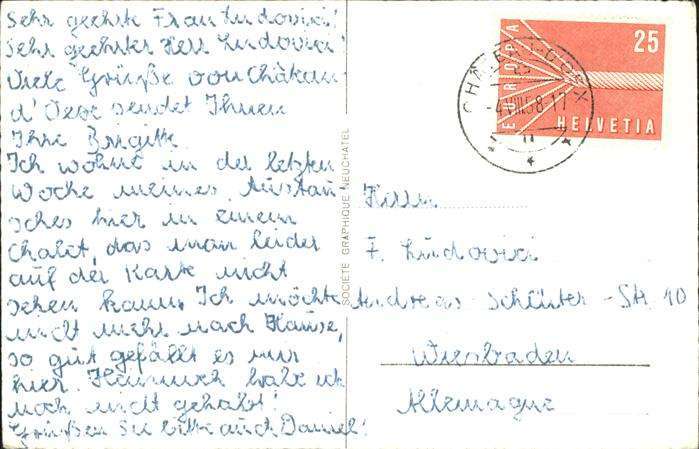 Sehr geehrte Frau Ludovici!
Sehr geehrter Herr Ludovici!
Viele Grüße von Château
d'Oex sendet Ihnen
Ihre Brigitte
Ich wohne in der letzten
Woche meines Austau-
sches hier in einem
Chalet, das man leider
auf der Karte nicht
sehen kann. Ich möchte
nicht mehr nach Hause,
so gut gefällt es mir
hier. Heimweh habe ich
noch nicht gehabt!
Grüßen Sie bitte auch Daniel!
SOCIÉTÉ GRAPHIQUE NEUCHATEL
EUROPA
25
HELVETIA
CHÂTEAU-D'OEX
-4.VIII.58.17
Herrn
F. Ludovici
Andreas Schlüter-Str. 10
Wiesbaden
Allemagne